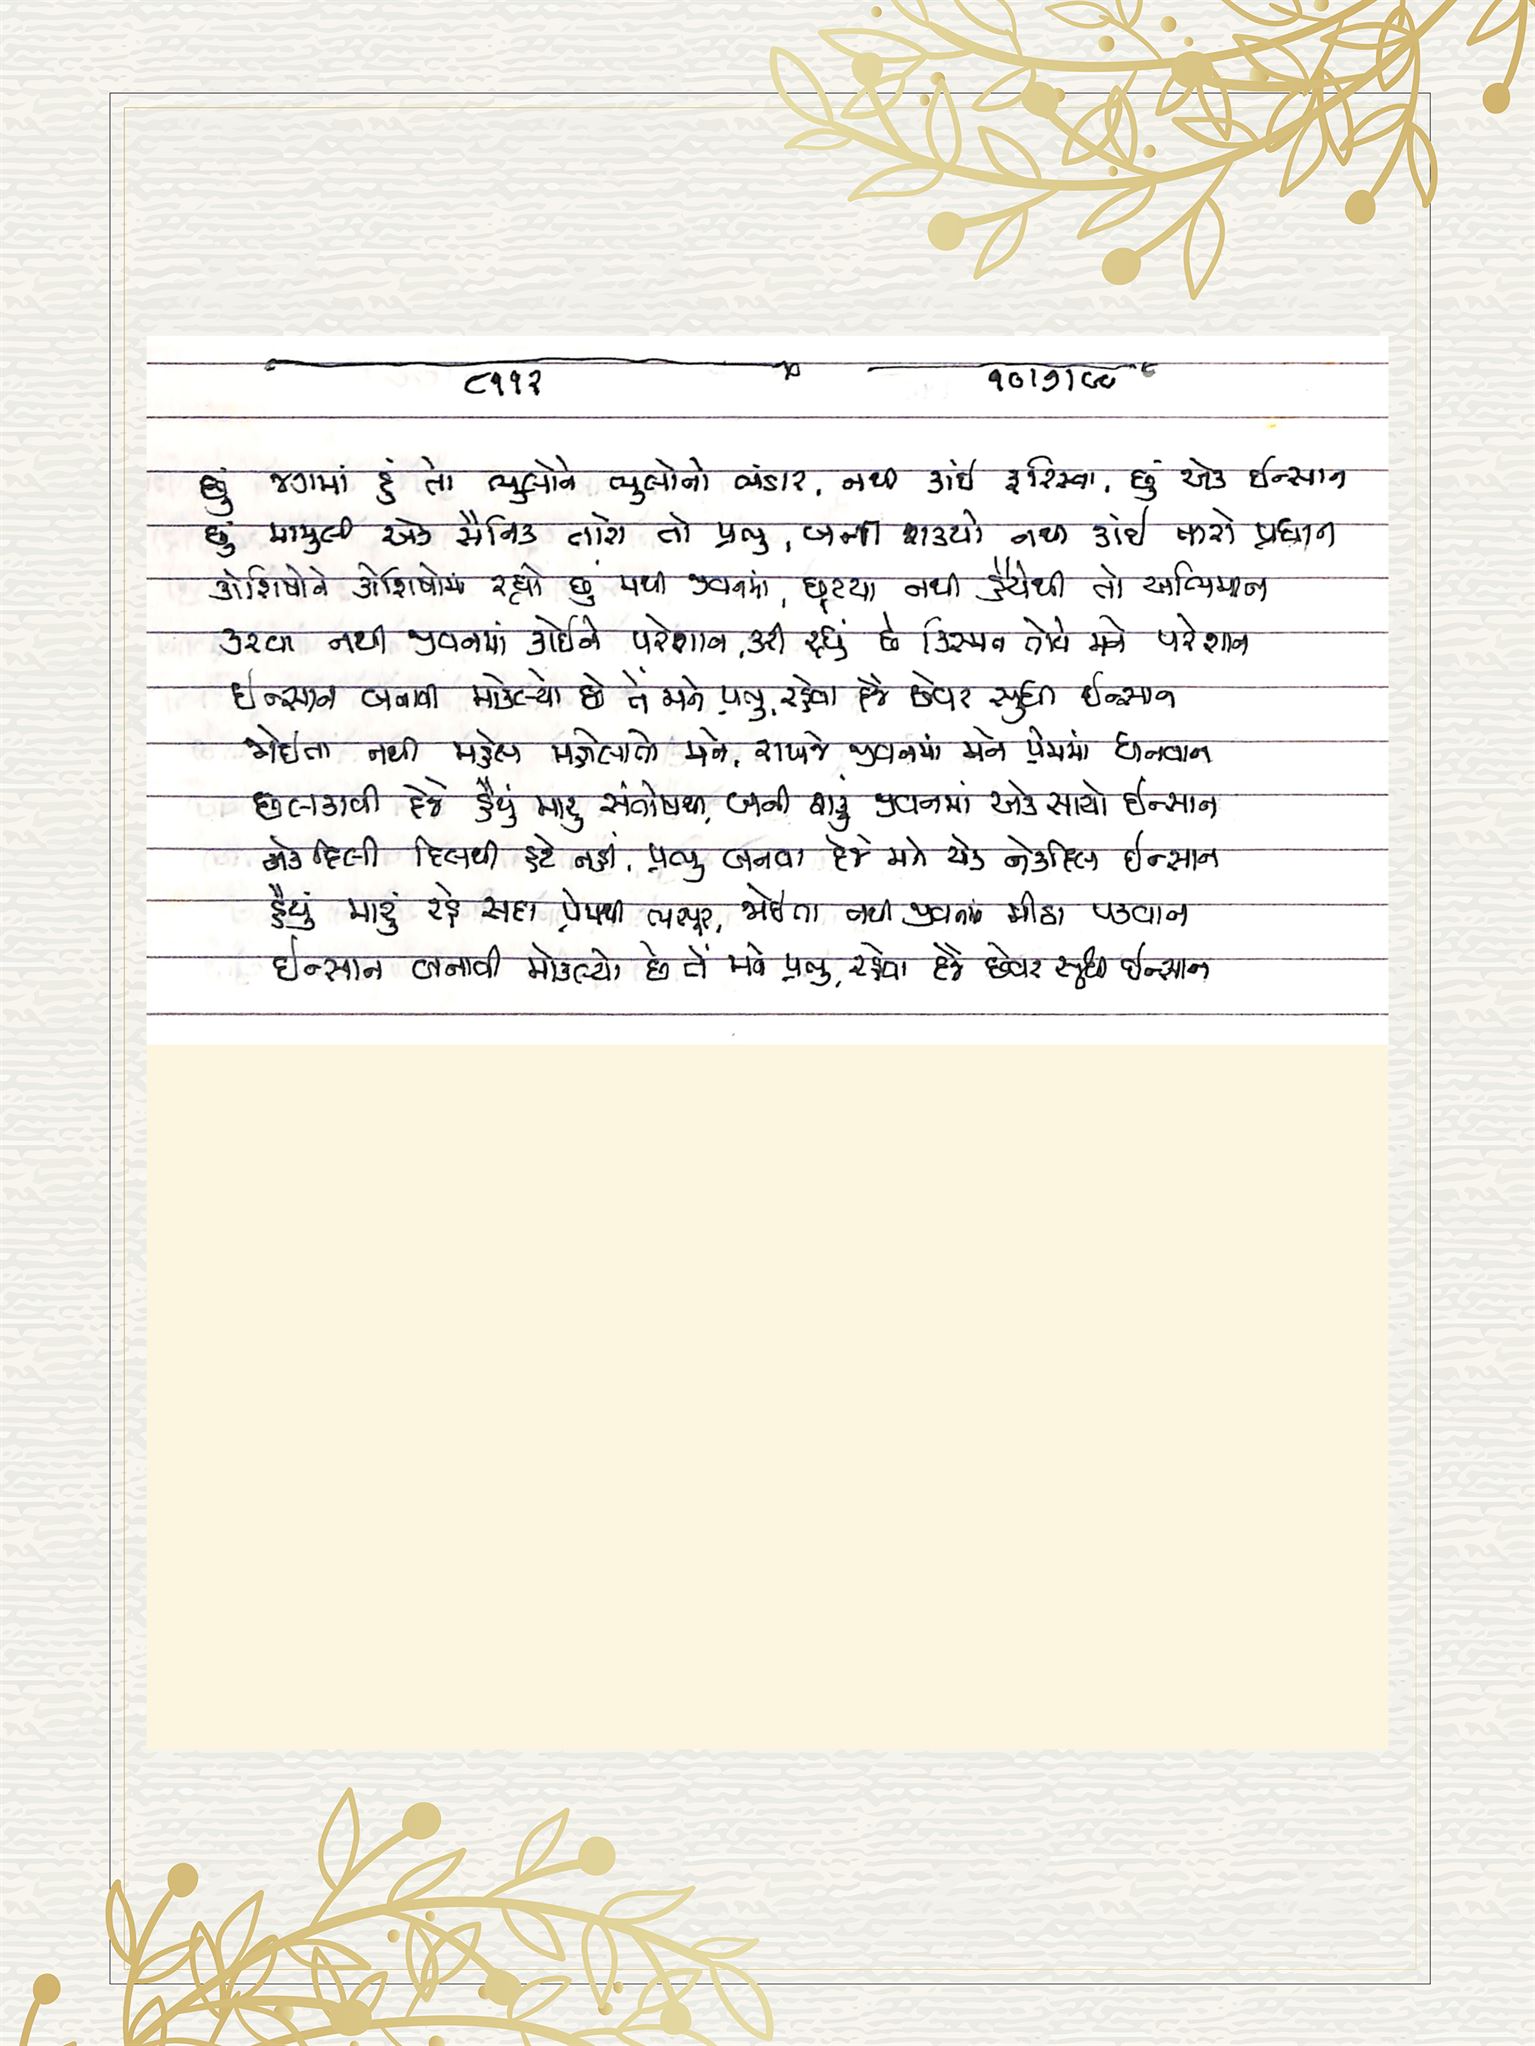 ૮૧૧૨ ૧૦।૭।૯૯
છું જગમાં હું તો ભુલોને ભુલોનો ભંડાર, નથી કાંઈ ફરિસ્તા, છું એક ઈન્સાન
છું મામુલી એક સૈનિક તારો તો પ્રભુ, બની શક્યો નથી કાંઈ તારો પ્રધાન
કોશિષોને કોશિષોમાં રહ્યો છું મથી જીવનમાં, છૂટયા નથી હૈયેથી તો અભિમાન
કરવા નથી જીવનમાં કોઈને પરેશાન, કરી રહ્યું છે કિસ્મત તોયે મને પરેશાન
ઈન્સાન બનાવી મોકલ્યો છે તેં મને પ્રભુ, રહેવા દેજે છેવટ સુધી ઈન્સાન
જોઈતા નથી મહેલ મહોલાતો મને, રાખજે જીવનમાં મને પ્રેમમાં ધનવાન
છલકાવી દેજે હૈયું મારું સંતોષથી, બની શકું જીવનમાં એક સાચો ઈન્સાન
એકદિલી દિલથી હટે નહીં, પ્રભુ બનવા દેજે મને એક નેકદિલ ઈન્સાન
હૈયું મારું રહે સદા પ્રેમથી ભરપૂર, જોઈતા નથી જીવનમાં મીઠા પકવાન
ઈન્સાન બનાવી મોકલ્યો છે તેં મને પ્રભુ, રહેવા દેજે છેવટ સુધી ઈન્સાન